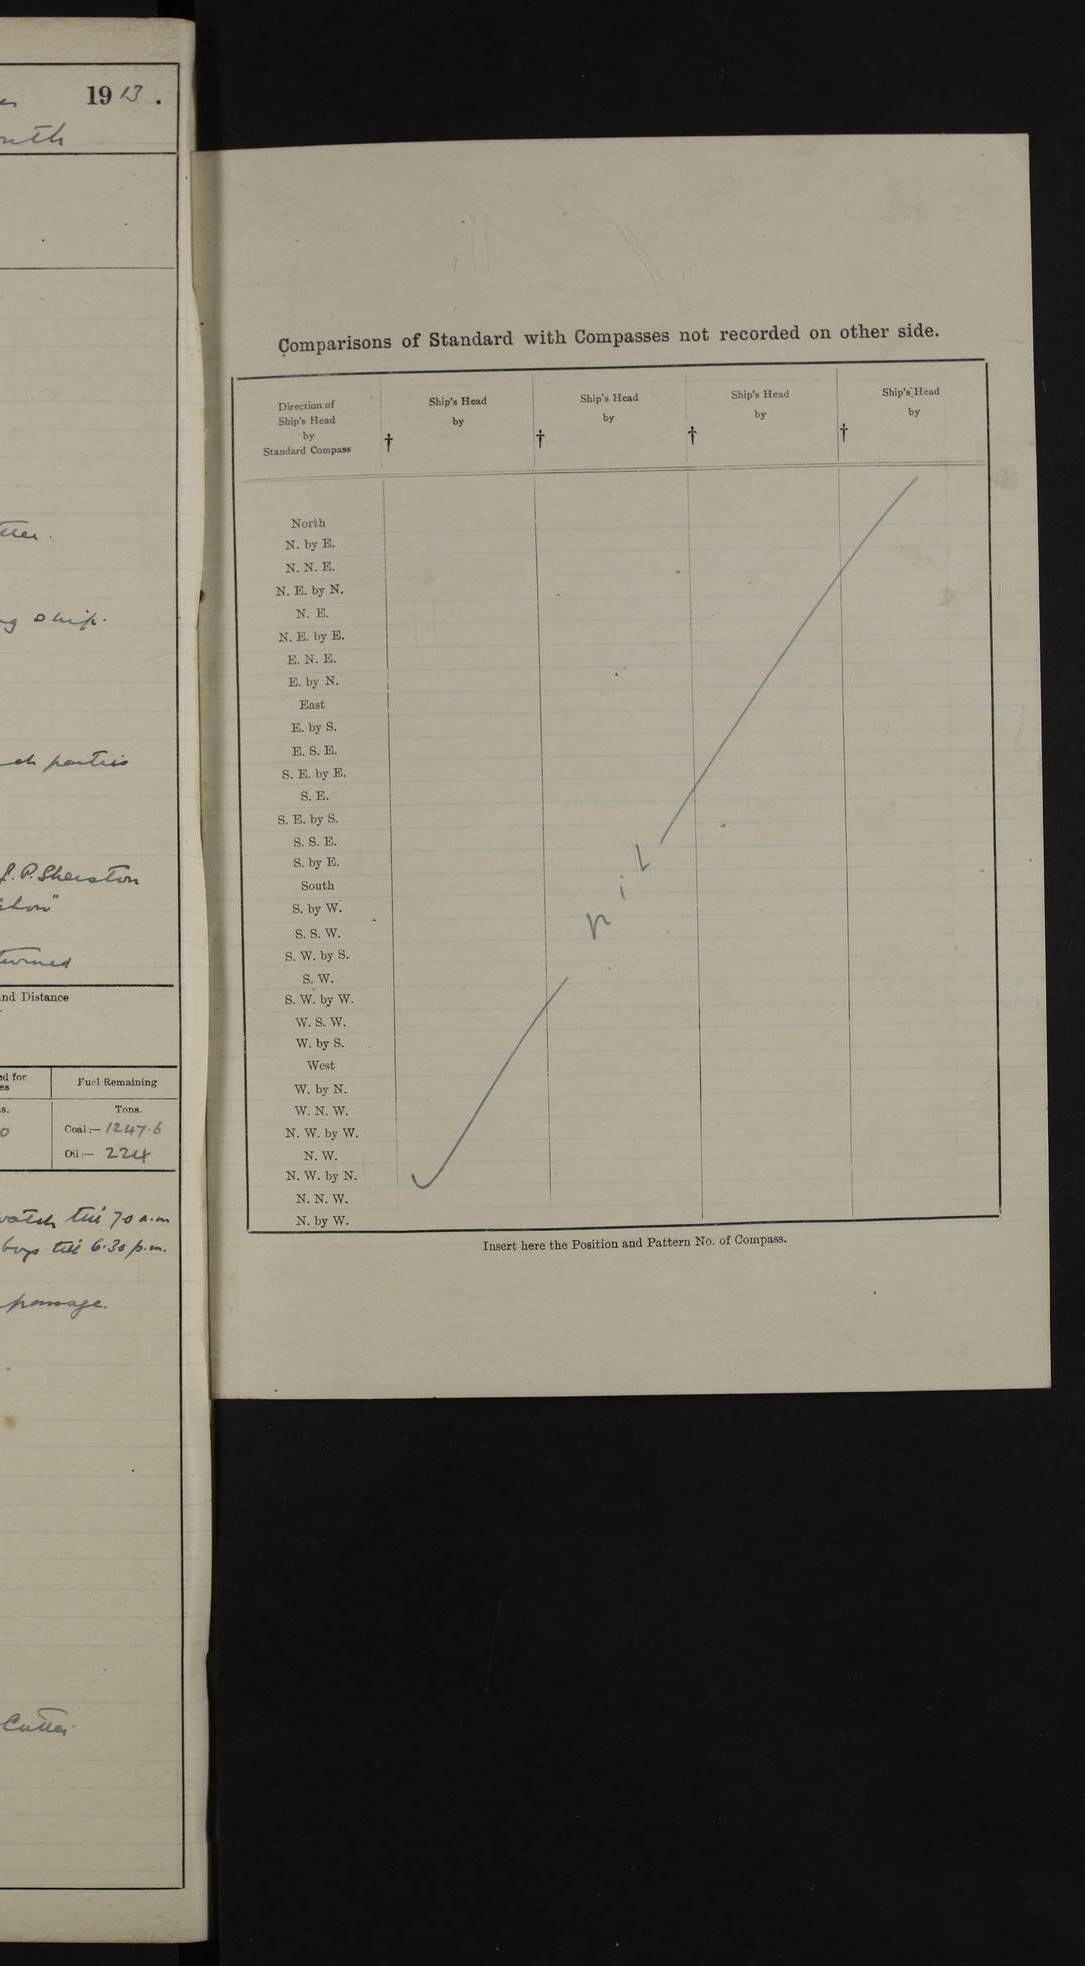 1913.
tter.
ng Ship.
ch parties
P. Sherston
turned
and Distance
ed for
es
Fuel Remaining
s.
Tons.
0
Coal:— 1247.6
Oil:— 224
watch till 7.0 a.m
boys till 6.30 p.m.
passage.
Cutter
Comparisons of Standard with Compasses not recorded on other side.
Direction of
Ship's Head
by
Standard Compass
†
Ship's Head
by
†
Ship's Head
by
†
Ship's Head
by
†
Ship's Head
by
North
N. by E.
N. N. E.
N. E. by N.
N. E.
N. E. by E.
E. N. E.
E. by N.
East
E. by S.
E. S. E.
S. E. by E.
S. E.
S. E. by S.
S. S. E.
S. by E.
South
S. by W.
S. S. W.
S. W. by S.
S. W.
S. W. by W.
W. S. W.
W. by S.
West
W. by N.
W. N. W.
N. W. by W.
N. W.
N. W. by N.
N. N. W.
N. by W.
nil
Insert here the Position and Pattern No. of Compass.